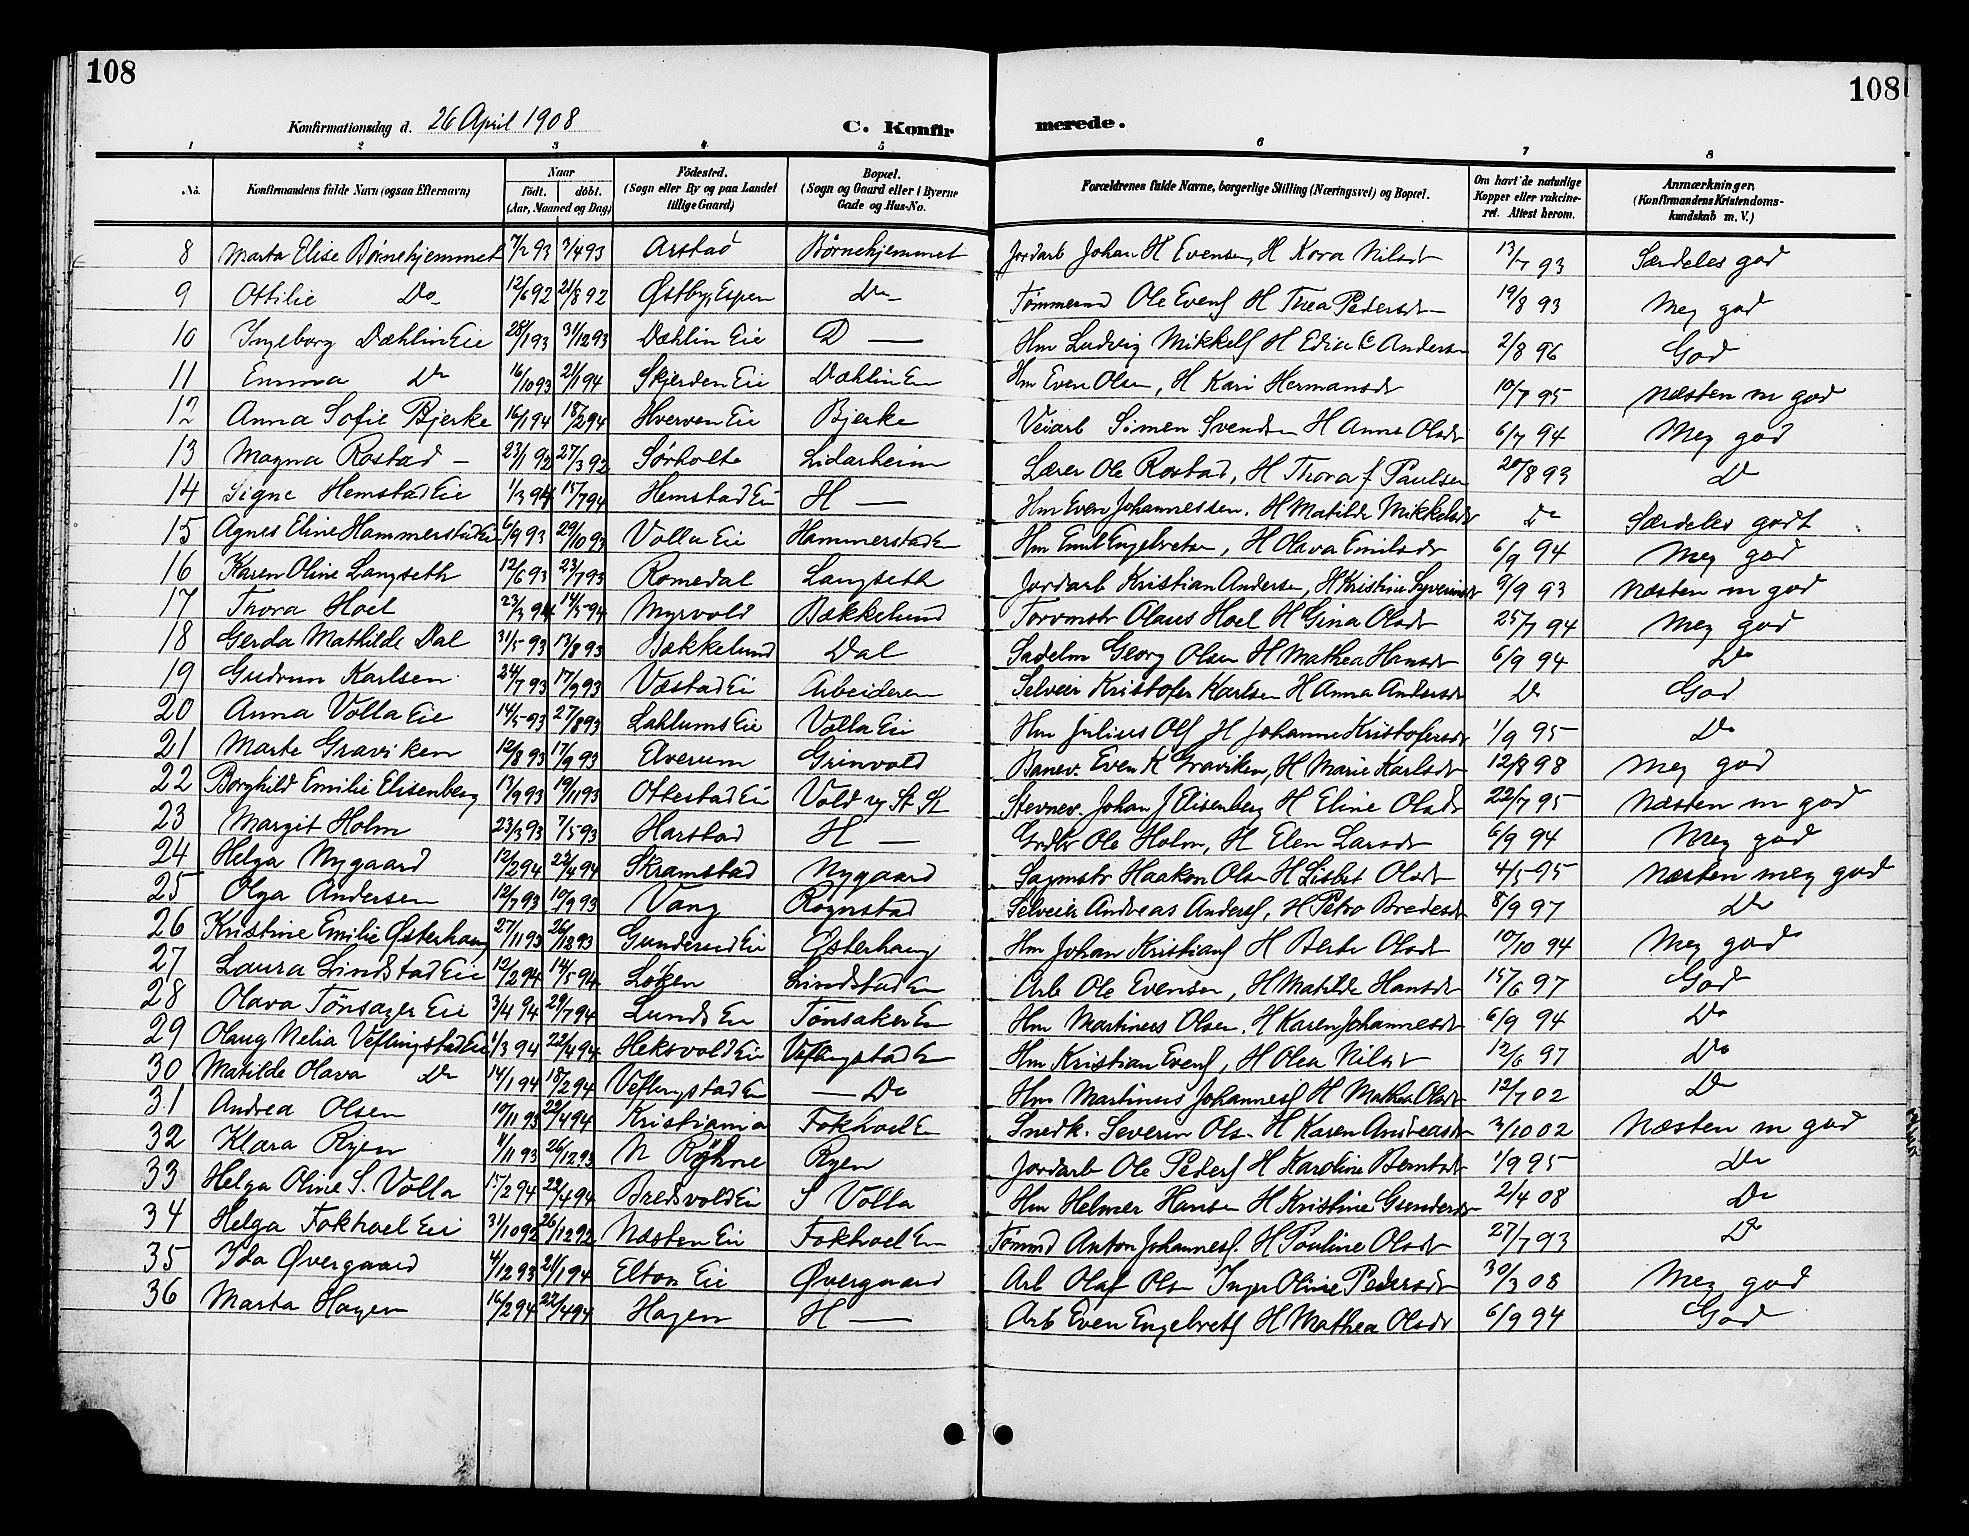 108
108
Konfirmationsdag d. 26 April 1908
C. Konfirmerede.
1 2 3 4 5 6 7 8
No. Konfirmandens fulde Navn (ogsaa Efternavn) Naar födt. döbt. (Aar, Maaned og Dag) Födested. (Sogn eller By og paa Landet tillige Gaard) Bopæl. (Sogn og Gaard eller i Byerne Gade og Hus-No. Forældrenes fulde Navne, borgerlige Stilling (Næringsvei) og Bopæl. Om havt de naturlige Kopper eller vakcineret. Attest herom. Anmærkninger. (Konfirmandens Kristendomskundskab m. V.)
8 Marta Elise Børnehjemmet 7/2 93 3/4 93 Arstad Børnehjemmet Jordarb Johan H Evensen, H Kora Nilsdr 13/7 93 Særdeles god
9 Ottilie Do 12/6 92 21/8 92 Østby, Espen Do Tømmermd Ole Evens H Thea Pedersdr 19/8 93 Meg god
10 Ingeborg Dæhlin Eie 28/1 93 31/12 93 Dæhlin Eie D — Hm Ludvig Mikkels H Edise C Anders 2/8 96 God
11 Emma Do 16/10 93 21/1 94 Skjerden Eie Dæhlin E Hm Even Olsen, H Kari Hermansdr 10/7 95 Næsten m god
12 Anna Sofie Bjerke 16/1 94 18/2 94 Hverven Eie Bjerke Veiarb Simen Svends H Anne Olsdr 6/7 94 Meg god
13 Magna Rostad — 23/1 92 27/3 92 Sørholte Lidarheim Lærer Ole Rostad, H Thora f Paulsen 20/8 93 D
14 Signe Hemstad Eie 1/3 94 15/7 94 Hemstad Ei H — Hm Even Johannessen. H Matilde Mikkelsdr Do Særdeles godt
15 Agnes Eline Hammerstad Ei 6/9 93 29/10 93 Volla Eie Hammerstad E Hm Emil Engebrets, H Olava Emilsdr 6/9 94 Meg god
16 Karen Oline Langseth 12/6 93 23/7 93 Romedal Langseth Jordarb Kristian Andersen, H Kristine Syverinsdr 9/9 93 Næsten m god
17 Thora Hoel 23/3 94 14/5 94 Myrvold Bækkelund Torvmstr Olaus Hoel H Gina Olsdr 25/7 94 Meg god
18 Gerda Mathilde Dal 31/5 93 13/8 93 Bækkelund Dal Sadelm Georg Olsen H Mathea Hansdr 6/9 94 Do
19 Gudrun Karlsen 24/7 93 17/9 93 Væstad Ei Arbeideren Selveier Kristofer Karlsen H Anna Andersdr D God
20 Anna Volla Eie 14/5 93 27/8 93 Lahlums Eie Volla Ei Hm Julius Ols H Johanne Kristofersdr 1/9 95 Do
21 Marte Graviken 12/8 93 17/9 93 Elverum Grinvold Banev. Even K Graviken, H Marie Karlsdr 12/8 98 Meg god
22 Borghild Emilie Elisenberg 13/9 93 19/11 93 Ottestad Ei Vold ng St St Stevnev. Johan J Elisenberg H Eline Olsdr 22/7 95 Næsten m god
23 Margit Holm 23/3 93 7/5 93 Harstad H — Grdbr Ole Holm, H Elen Larsdr 6/9 94 Meg god
24 Helga Nygaard 12/2 94 22/4 94 Skramstad Nygaard Sagmstr Haaken Olsen H Lisbet Olsdr 4/5 95 Næsten meg god
25 Olga Andersen 12/7 93 10/9 93 Vang Rognstad Selveier Andreas Anders, H Petra Bredesdr 8/9 97 Do
26 Kristine Emilie Østerhaug 27/11 93 26/12 93 Gunderud Ei Østerhaug Hm Johan Kristians H Berte Olsdr 10/10 94 Meg god
27 Laura Lindstad Eie 12/2 94 14/5 94 Løken Lindstad E Arb Ole Evensen, H Matilde Hansdr 15/6 97 God
28 Olava Tønsager Eie 3/4 94 29/7 94 Lunds Ei Tønsaker E Hm Martinus Olsen. H Karen Johannesdr 6/9 94 Do
29 Olaug Nelia Veflingstad Eie 1/3 94 22/4 94 Heksvold Ei Veflingstad E Hm Kristian Evens, H Olea Nilsdr 12/6 97 Do
30 Matilde Olava Do 14/1 94 18/2 94 Veflingstad E — Do Hm Martinus Johannes H Mathea Olsdr 12/7 02 D
31 Andrea Olsen 10/11 93 22/4 94 Kristiania Fokhoel E Snedk. Severin Ols H Karen Andreasdr 3/10 02 Næsten m god
32 Klara Ryen 11/11 93 26/12 93 N Ryhne Ryen Jordarb Ole Peders H Karoline Berntsdr 1/9 95 Do
33 Helga Oline S. Volla 15/2 94 22/4 94 Bredsvold Ei S Volla Hm Helmer Hansen H Kristine Gsendersdr 2/4 08 D
34 Helga Fokhoel Eie 31/10 92 26/12 92 Næsten Ei Fokhoel E Tømmd Anton Johannes. H Pauline Olsdr 27/7 93 Do
35 Ida Øvergaard 4/12 93 21/1 94 Elton Eie Øvergaard Arb Olaf Olsn Inger Oline Pedersdr 30/3 08 Meg god
36 Marta Hagen 16/2 94 22/4 94 Hagen H — Arb Even Engebrets H Mathea Olsdr 6/9 94 God